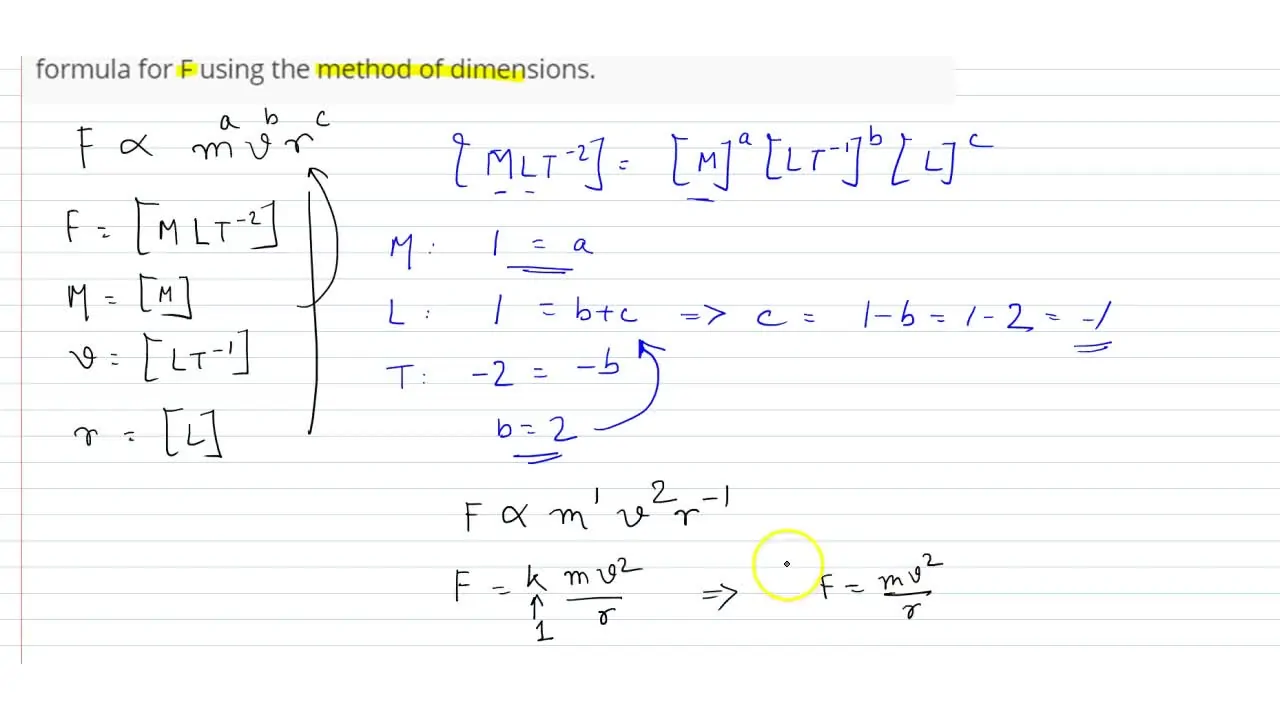 formula for F using the method of dimensions.
F ∝ m^a v^b r^c
F = [M L T^-2]
M = [M]
v = [L T^-1]
r = [L]
[M L T^-2] = [M]^a [L T^-1]^b [L]^c
M: 1 = a
L: 1 = b+c => c = 1-b = 1-2 = -1
T: -2 = -b
b = 2
F ∝ m^1 v^2 r^-1
F = k mv^2/r => F = mv^2/r
↑
1